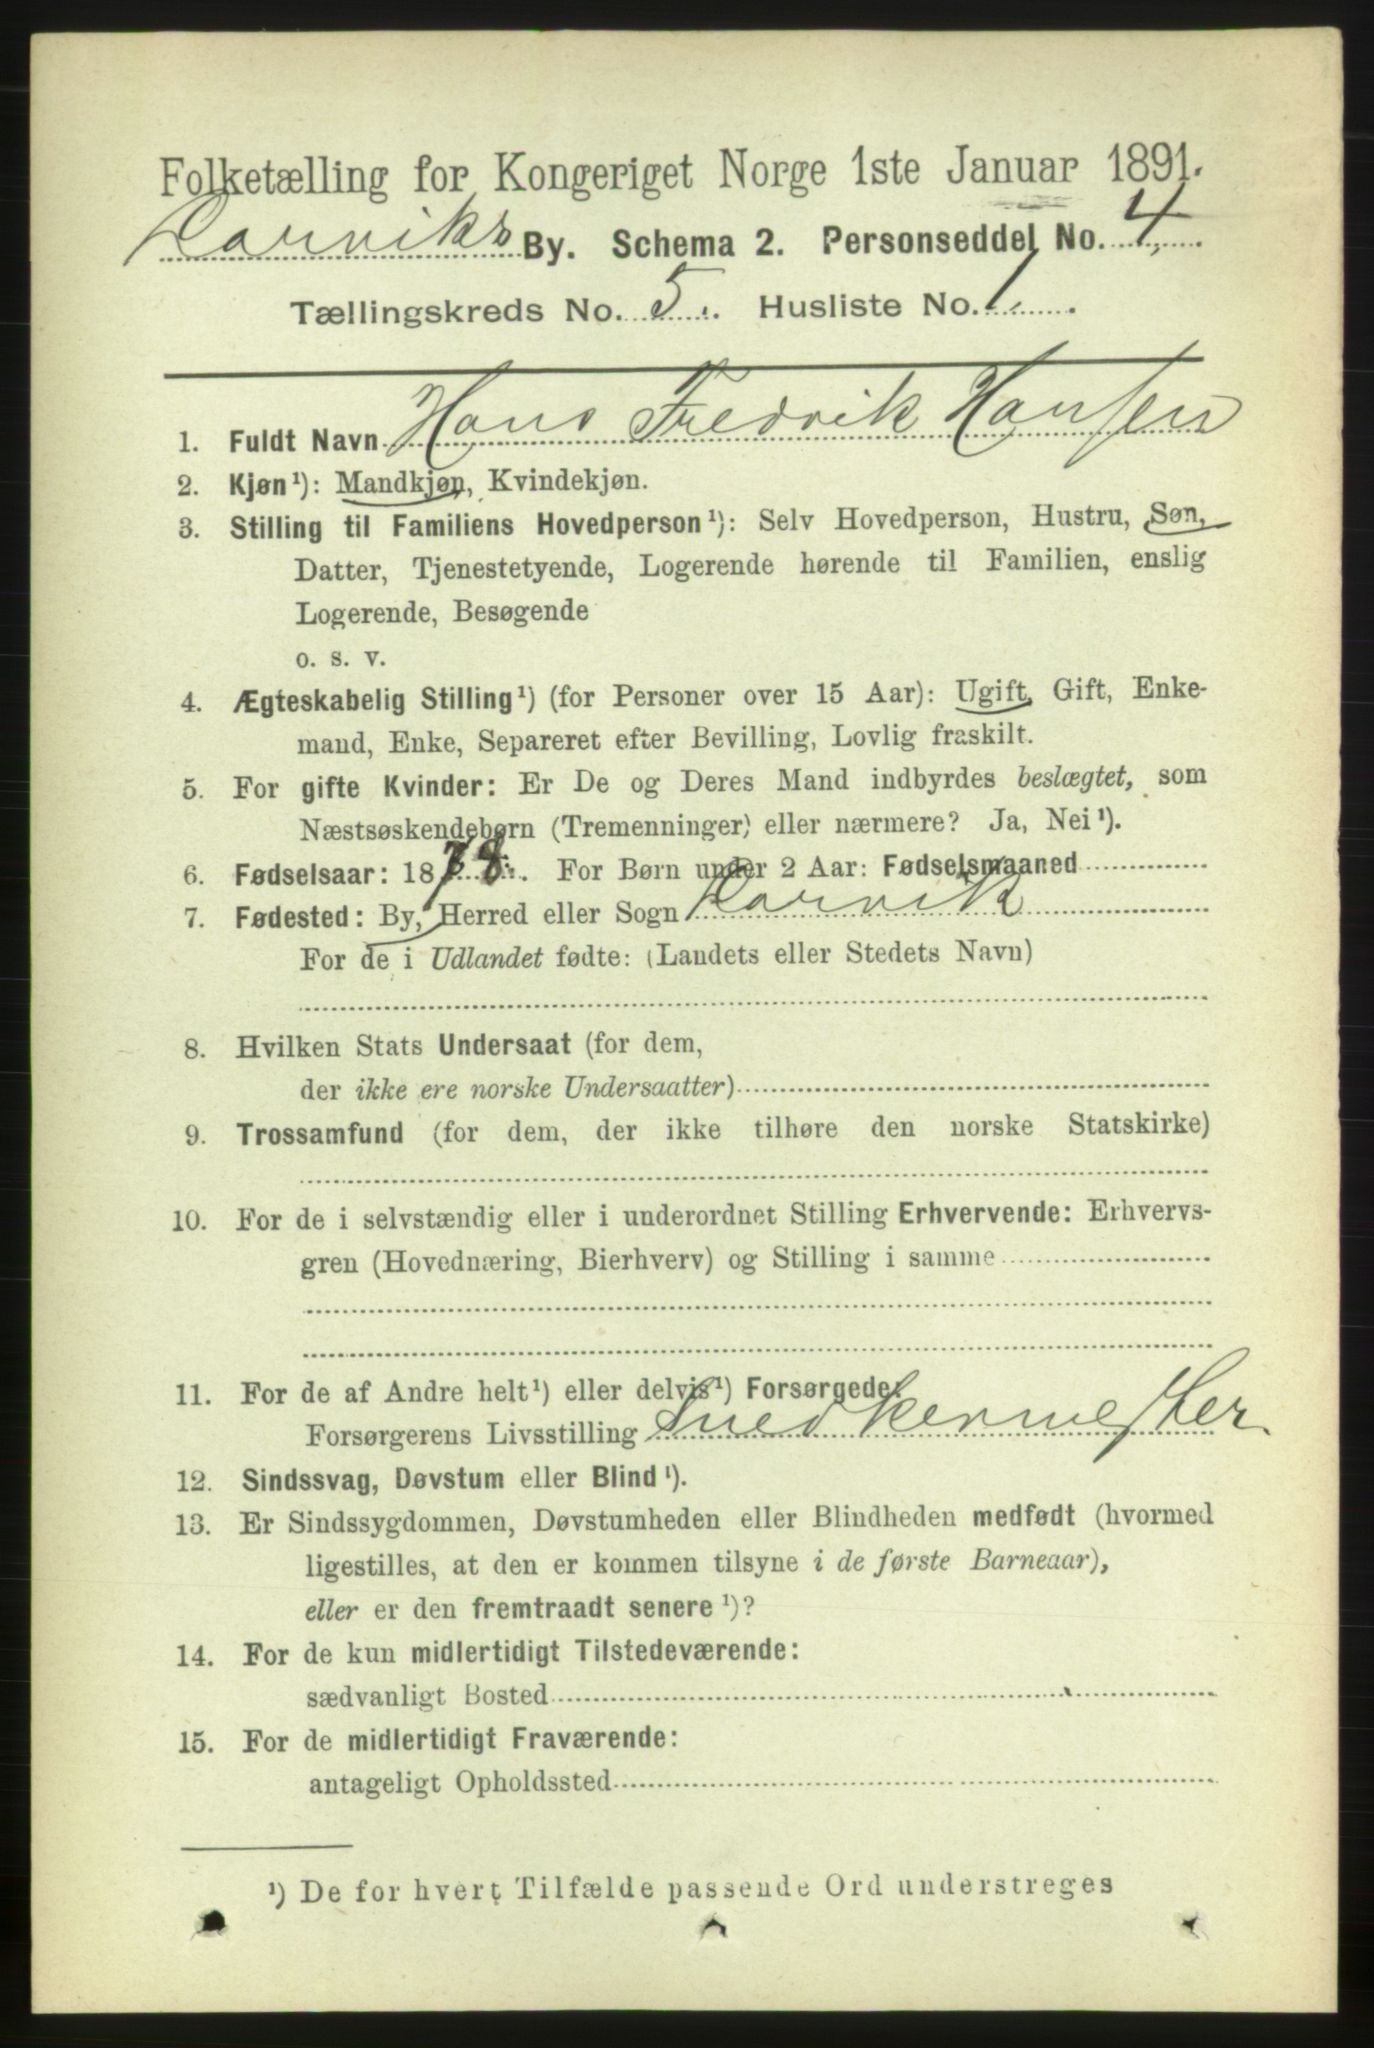 Folketælling for Kongeriget Norge 1ste Januar 1891.
Larviks By. Schema 2. Personseddel No. 4.
Tællingskreds No. 5. Husliste No. 1.
1. Fuldt Navn Hans Fredrik Hansen
2. Kjøn¹): Mandkjøn, Kvindekjøn.
3. Stilling til Familiens Hovedperson¹): Selv Hovedperson, Hustru, Søn,
Datter, Tjenestetyende, Logerende hørende til Familien, enslig
Logerende, Besøgende
o. s. v.
4. Ægteskabelig Stilling¹) (for Personer over 15 Aar): Ugift, Gift, Enke-
mand, Enke, Separeret efter Bevilling, Lovlig fraskilt.
5. For gifte Kvinder: Er De og Deres Mand indbyrdes beslægtet, som
Næstsøskendebørn (Tremenninger) eller nærmere? Ja, Nei¹).
6. Fødselsaar: 1878. For Børn under 2 Aar: Fødselsmaaned
7. Fødested: By, Herred eller Sogn Larvik
For de i Udlandet fødte: (Landets eller Stedets Navn)
8. Hvilken Stats Undersaat (for dem,
der ikke ere norske Undersaatter)
9. Trossamfund (for dem, der ikke tilhøre den norske Statskirke)
10. For de i selvstændig eller i underordnet Stilling Erhvervende: Erhvervs-
gren (Hovednæring, Bierhverv) og Stilling i samme
11. For de af Andre helt¹) eller delvis¹) Forsørgede:
Forsørgerens Livsstilling Snedkermester
12. Sindssvag, Døvstum eller Blind¹).
13. Er Sindssygdommen, Døvstumheden eller Blindheden medfødt (hvormed
ligestilles, at den er kommen tilsyne i de første Barneaar),
eller er den fremtraadt senere¹)?
14. For de kun midlertidigt Tilstedeværende:
sædvanligt Bosted
15. For de midlertidigt Fraværende:
antageligt Opholdssted
¹) De for hvert Tilfælde passende Ord understreges